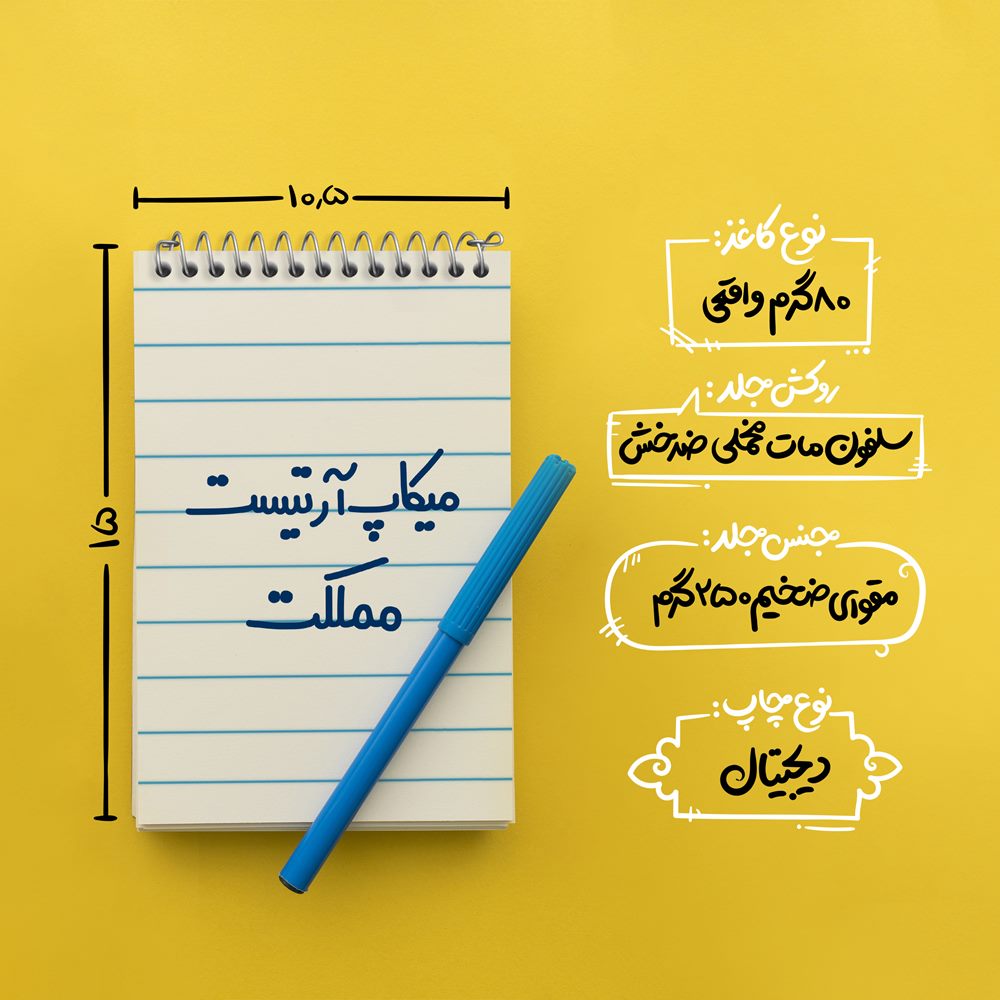 ۱۰٫۵
۱۵
میکاپ آرتیست
مملکت
نوع کاغذ:
۸۰ گرم واقعی
روکش جلد:
سلفون مات مخملی ضدخش
جنس جلد:
مقوای ضخیم ۲۵۰ گرم
نوع چاپ:
دیجیتال